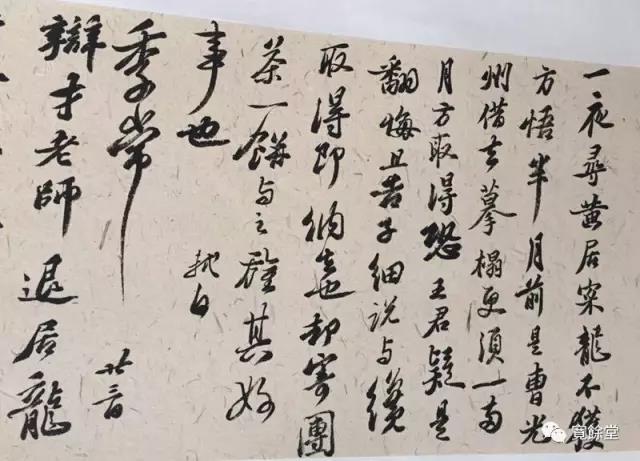 一夜尋黄居寀龍不獲
方悟半月前是曹光
州借去摹搨更須一兩
月方取得恐王君疑是
翻悔且告子細説與纔
取得即納去也却寄團
茶一餅與之旌其好
事也
軾白
季常
廿三日
辯才老師退居龍
寶餘堂